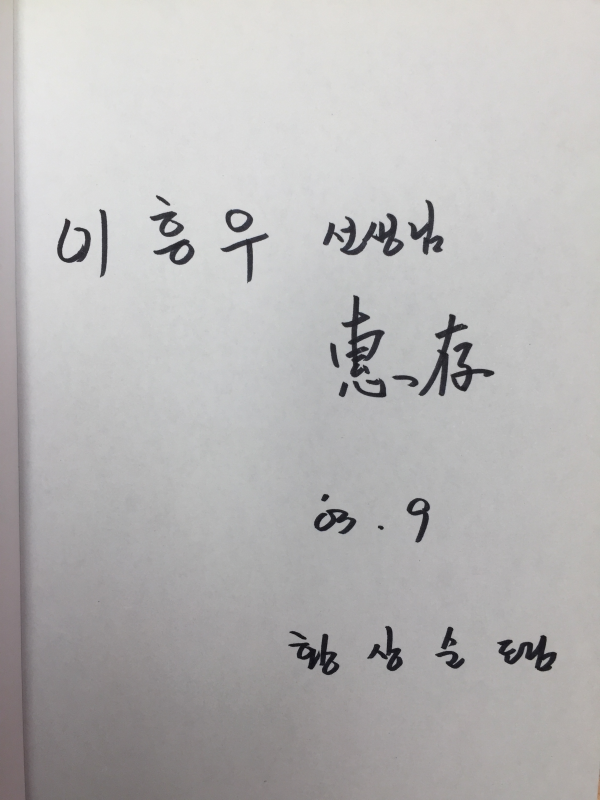 이 흥 우 선생님
惠存
'03. 9
황 상 순 드림